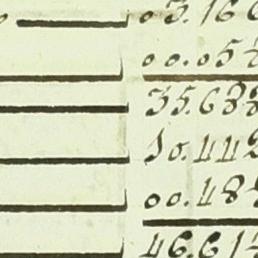 03.166
00.05
35.688
10.442
00.48
46.61